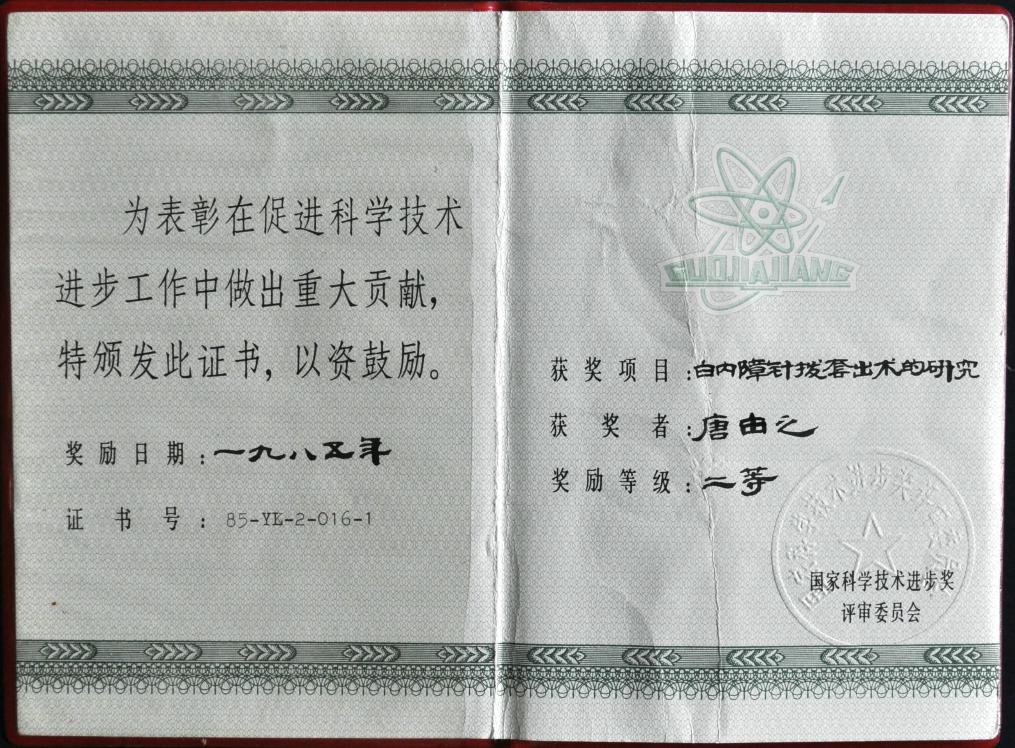 为表彰在促进科学技术
进步工作中做出重大贡献，
特颁发此证书，以资鼓励。
奖励日期：一九八五年
证书号：85-YK-2-016-1
GUOJIAJIANG
获奖项目：白内障针拨套出术的研究
获奖者：唐由之
奖励等级：二等
国家科学技术进步奖评审委员会
国家科学技术进步奖
评审委员会